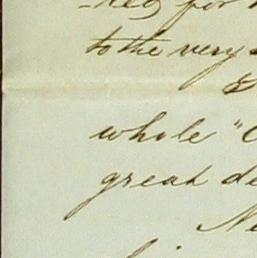 -ked for
to the very
whole "
great de
Ne